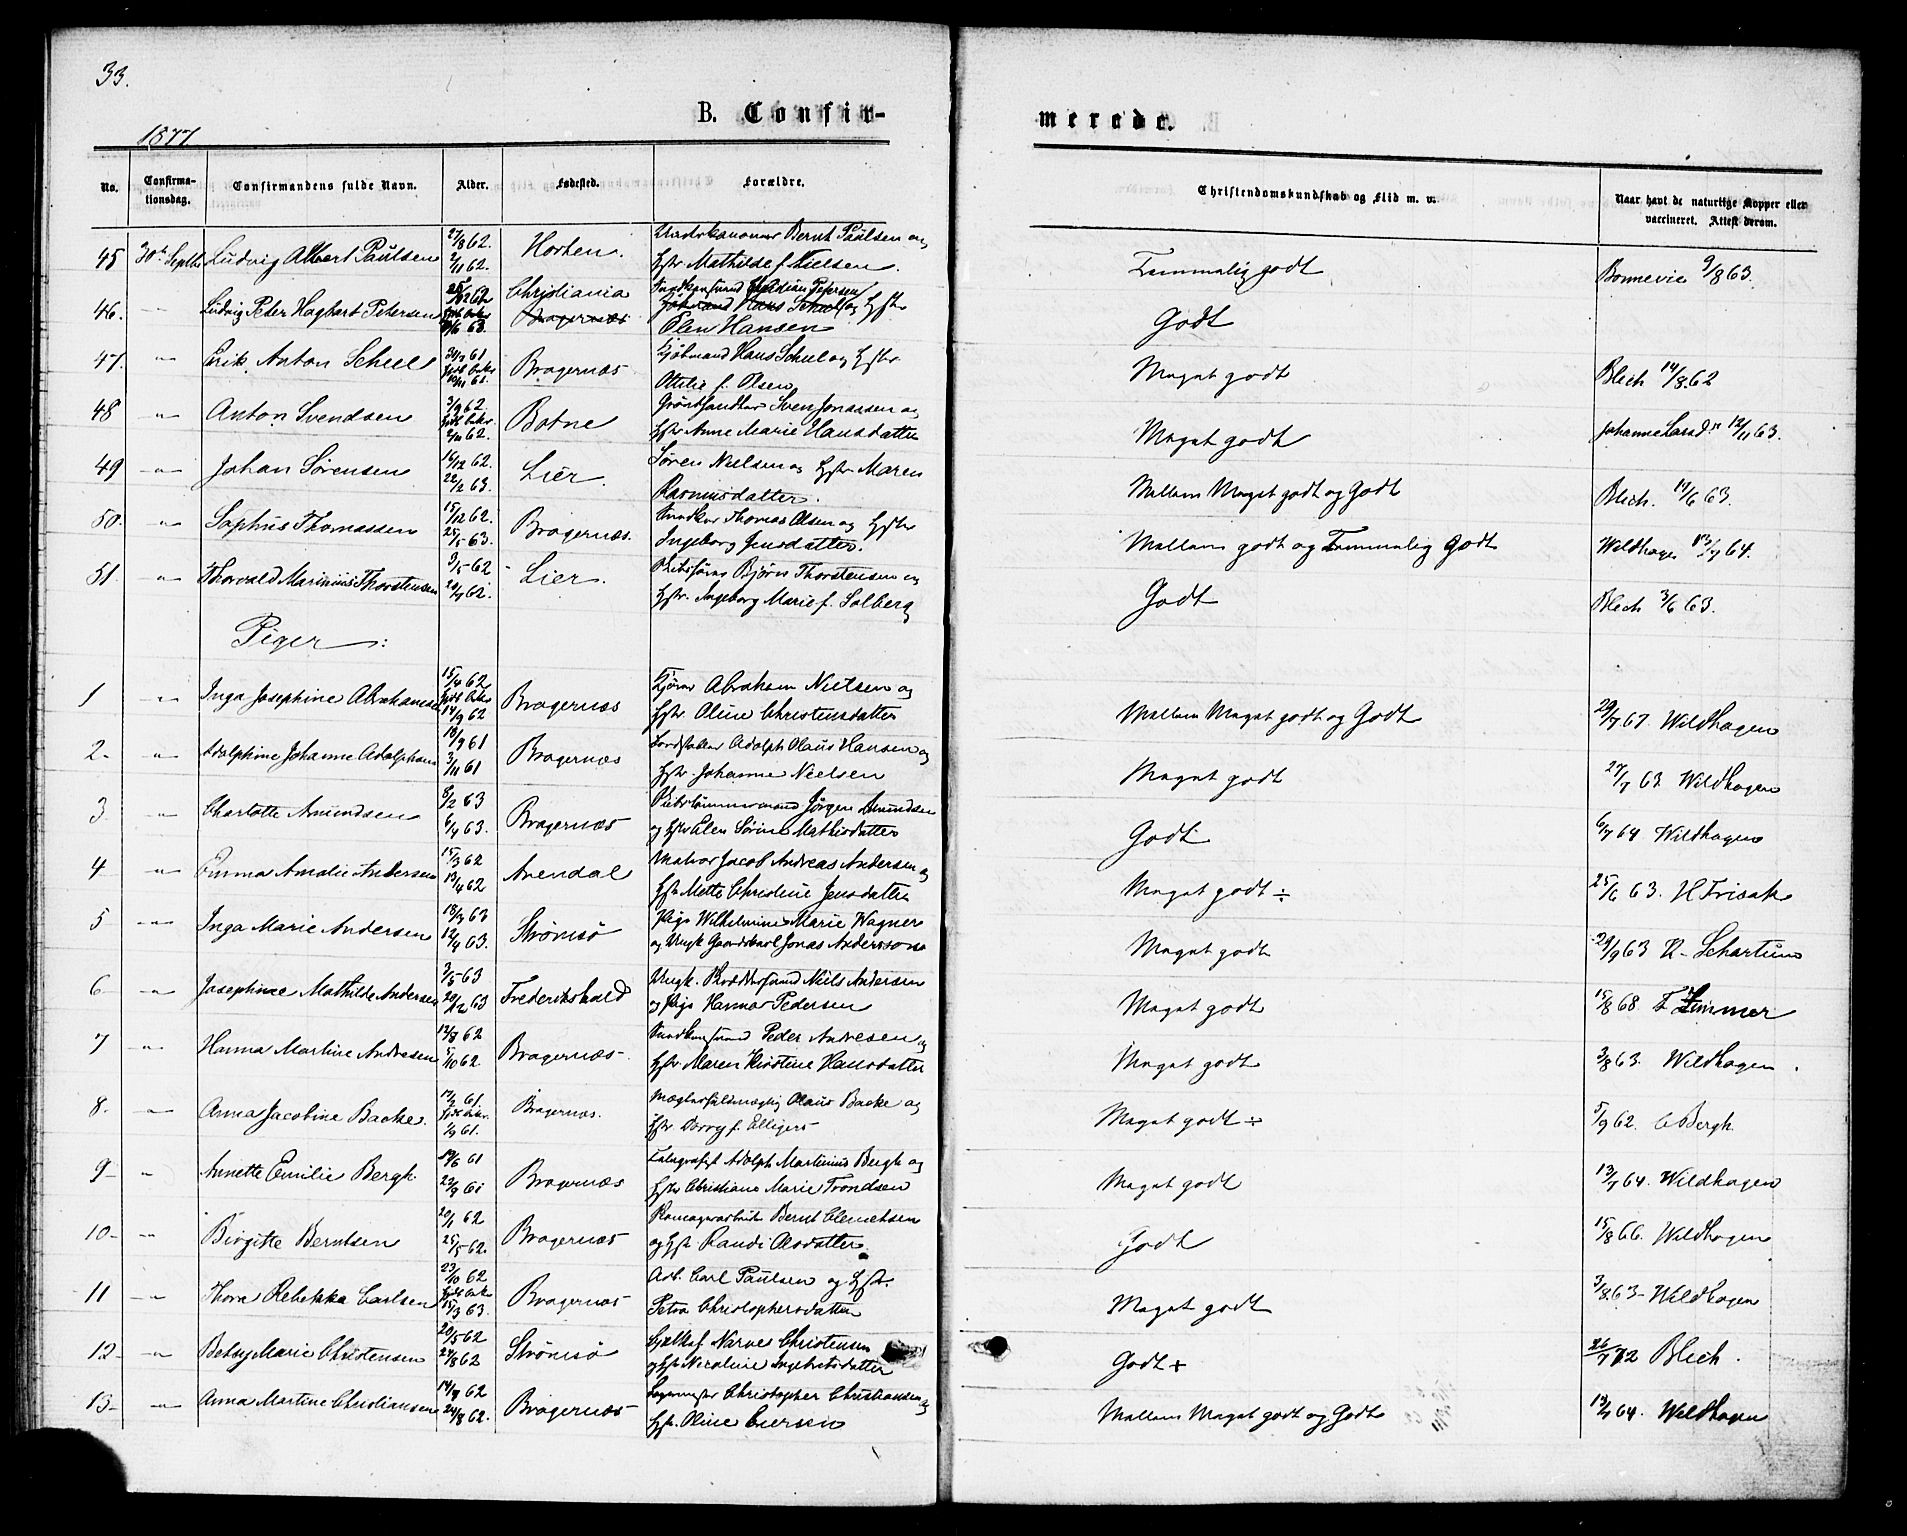 33.
B. Confir-
merede.
1877
No. Confirma-tionsdag. Confirmandens fulde Navn. Alder. Fødested. Forældre. Christendomskundskab og Flid m. v. Naar havt de naturlige Kopper eller vaccineret. Attest derom.
45 30te Septbr Ludvig Albert Paulsen 27/8 62. 2/11 62. Horten. Underkanoner Bernt Paulsen og Hstr Mathilde f. Nielsen. Temmelig godt Bonnevie 9/8 63.
46. " Ludvig Peter Hagbart Petersen Christiania Bragernæs Hans Schiel og Hstr Elen Hansen Godt
47. " Erik Anton Schiel 61 Bragernæs Kjøbmand Hans Schiel og Hstr. Ottilie f. Olsen Meget godt Blich 14/8 62
48 " Anton Svendsen 3/9 62. 2/11 62. Botne Sven Jonassen og Hstr Anne Marie Hansdatter Meget godt Johanne Larsd. 12/11 63.
49 " Johan Sørensen 14/12 62. 22/2 63. Lier. Søren Nielsen og Hstr Maren Rasmusdatter. Mellem Meget godt og Godt Blich. 19/6 63.
50. " Sophus Thomassen 15/12 62. 25/5 63. Bragernæs. Thomas Olsen og Hstr Ingeborg Jensdatter. Mellem godt og Temmelig Godt Wildhagen 13/7 64.
51. " Thorvald Marinius Thorstensen 3/5 62 20/7 62. Lier. Bjørn Thorstensen og Hstr. Ingeborg Marie f. Solberg Godt Blich 3/6 63.
Piger:
1 " Inga Josephine Abrahamsen 15/4 62 14/9 62 Bragernæs Abraham Nielsen og Hstr. Oline Christensdatter Mellem Meget godt og Godt 29/7 67 Wildhagen
2 " Adolphine Johanne Adolphsen 61 3/11 61 Bragernæs Adolph Olaus Hansen og Hstr. Johanne Nielsen Meget godt 27/7 63 Wildhagen
3 " Charlotte Amundsen 8/2 63 6/4 63. Bragernæs Jørgen Amundsen og Hstr Elen Sørine Mathisdatter Godt 6/7 64 Wildhagen
4 " Emma Amalie Andersen 15/3 62 13/4 62 Arendal Jacob Andreas Andersen og Hstr Mette Christine Jensdatter Meget godt ÷ 25/6 63. H Frisak
5 " Inga Marie Andersen 18/3 63 12/4 63. Strømsø Pige Wilhelmine Marie Wagner og Ungk Gaardskarl Jonas Anderssone Meget godt 29/9 63 R- Schartum
6 " Josephine Mathilde Andersen 3/5 63 20/12 63 Frederikshald Ungk. Niels Andersen og Pige Hanna Pedersen Meget godt 15/8 68. Zimmer
7 " Hanna Martine Andresen 12/8 62 5/10 62. Bragernæs Peder Andresen og Hstr Maren Kirstine Hansdatter Meget godt 3/8 63. Wildhagen.
8. " Anna Jacobine Backe. 61. 1/9 61. Bragernæs. Mæglerfuldmægtig Olaus Backe og Hstr. f. Elligers Meget godt ÷ 5/9 62. C Bergh.
9 " Annette Emilie Bergh. 19/6 61 22/9 61 Bragernæs Telegrafist Adolph Martinius Bergh og Hstr Christiane Marie Trondsen Meget godt 13/7 64. Wildhagen
10 " Birgitte Berntsen 20/1 62 25/5 62. Bragernæs Bernt Clemetsen og Hstr Randi Olsdatter Godt 15/8 66. Wildhagen
11 " Thora Rebekka Carlsen 23/10 62 15/3 63. Bragernæs Arb. Carl Paulsen og Hstr. Petra Christophersdatter Meget godt 3/8 63 Wildhagen
12 " Betsy Marie Christensen 20/5 62 24/8 62 Strømsø Christensen og Hstr Ingebretsdatter Godt + 26/7 72 Blich.
13 " Anna Martine Christiansen 14/7 62 24/8 62. Bragernæs Christopher Christiansen og Hstr. Oline Eversen Mellem Meget godt og Godt 13/7 64. Wildhagen